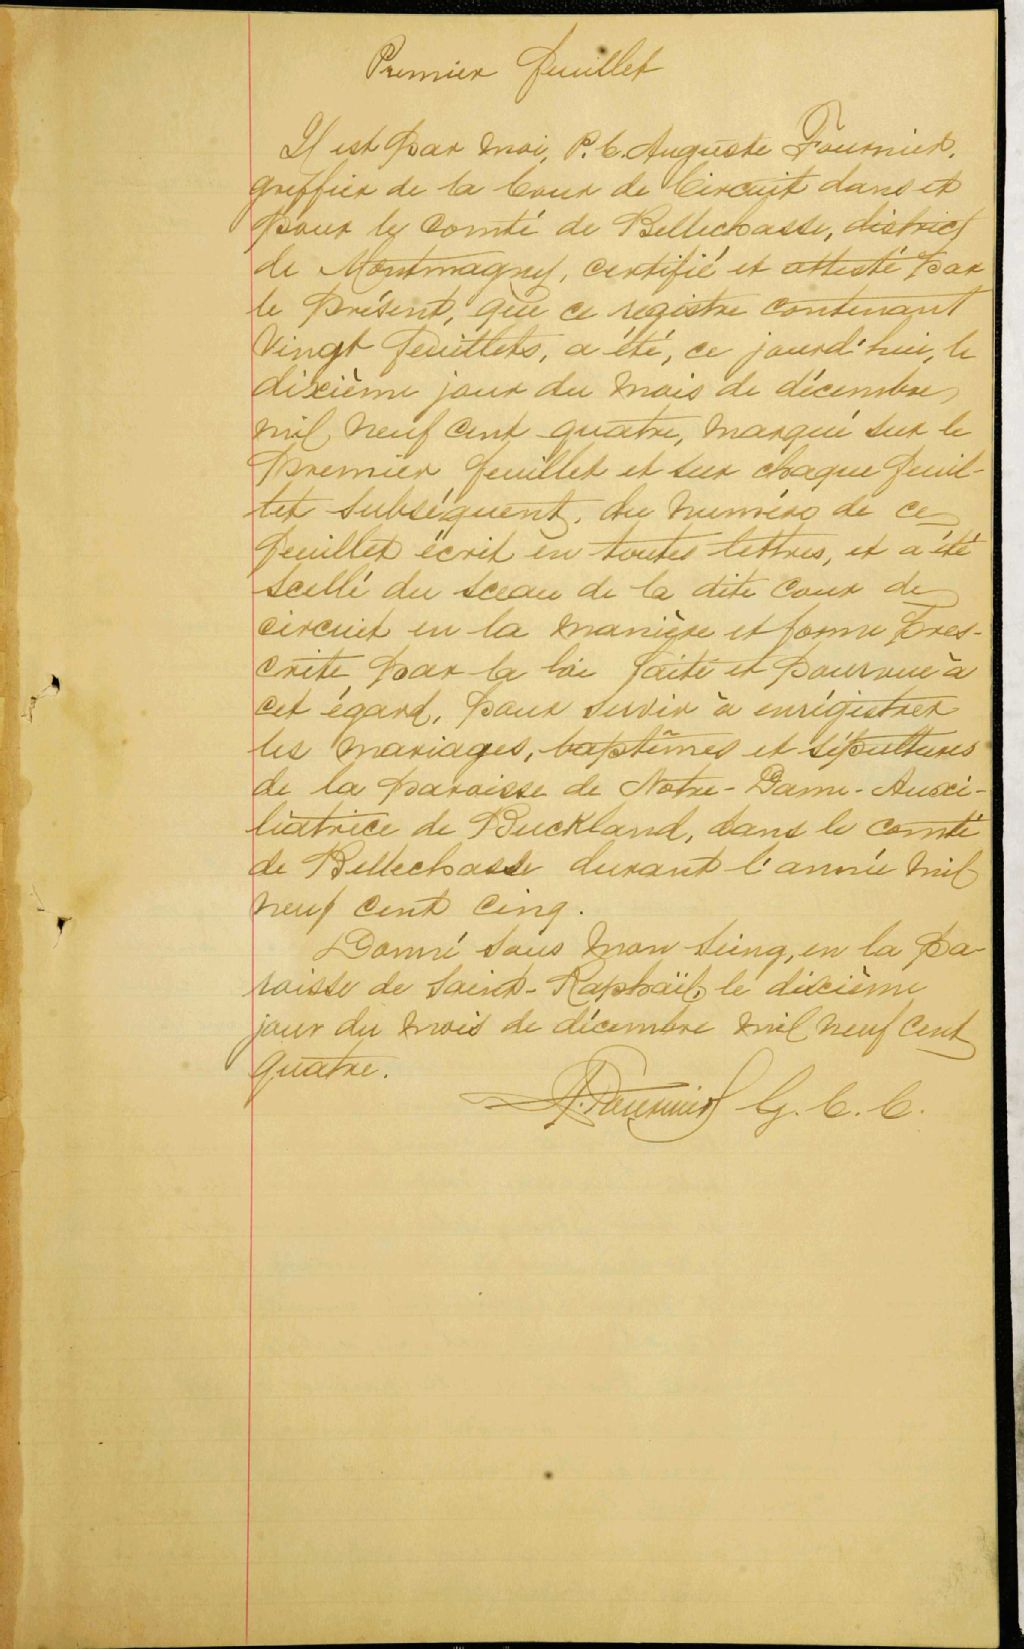 Premier feuillet
Il est par moi, P. C. Auguste Fournier,
greffier de la Cour de Circuit dans et
pour le comté de Bellechasse, district
de Montmagny, certifié et attesté par
le présent, que ce registre contenant
vingt feuillets, a été, ce jourd'hui, le
dixième jour du mois de décembre
mil neuf cent quatre, marqué sur le
premier feuillet et sur chaque feuil-
let subséquent, du numéro de ce
feuillet écrit en toutes lettres, et a été
scellé du sceau de la dite cour de
circuit en la manière et forme pres-
crite par la loi faite et pourvue à
cet égard, pour servir à enrégistrer
les mariages, baptêmes et sépultures
de la paroisse de Notre-Dame-Auxi-
liatrice de Buckland, dans le comté
de Bellechasse durant l'année mil
neuf cent cinq.
Donné sous mon seing, en la pa-
roisse de Saint-Raphaël, le dixième
jour du mois de décembre mil neuf cent
quatre.
A. Fournier G. C. C.